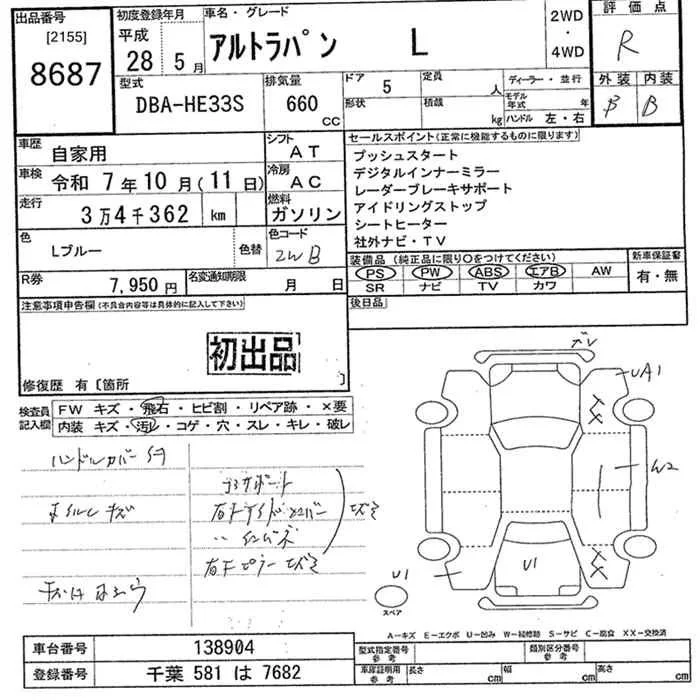 出品番号 初度登録年月 車名・グレード 2WD・4WD 評価点
[2155] 8687 平成 28 5月 アルトラパン L R
型式 DBA-HE33S 排気量 660 CC ドア 5 形状 定員 人 積載 kg ディーラー・並行 モデル年式 年 ハンドル 左・右 外装 B 内装 B
車歴 自家用 シフト AT
車検 令和 7年 10月(11日) 冷房 AC
走行 3万4千362 km 燃料 ガソリン
色 Lブルー 色替 色コード ZWB
R券 7,950円 名変通知期限 月 日
セールスポイント(正常に機能するものに限ります)
プッシュスタート
デジタルインナーミラー
レーダーブレーキサポート
アイドリングストップ
シートヒーター
社外ナビ・TV
装備品(純正品に限り○をつけてください) 新車保証書
PS PW ABS エアB AW 有・無
SR ナビ TV カワ
後日品
注意事項申告欄(不具合内容等は具体的に記入して下さい)
初出品
修復歴 有〔箇所 〕
検査員記入欄 FW キズ・飛石・ヒビ割・リペア跡・×要
内装 キズ・汚レ・コゲ・穴・スレ・キレ・破レ
ハンドルカバー
キズ
UA1
W2
U1
U1
スペア
A−キズ E−エクボ U−凹み W−補修跡 S−サビ C−腐食 XX−交換済
車台番号 138904 型式指定番号 参考 類別区分番号 参考
登録番号 千葉 581 は 7682 車庫証明用 参考 長さ cm 幅 cm 高さ cm